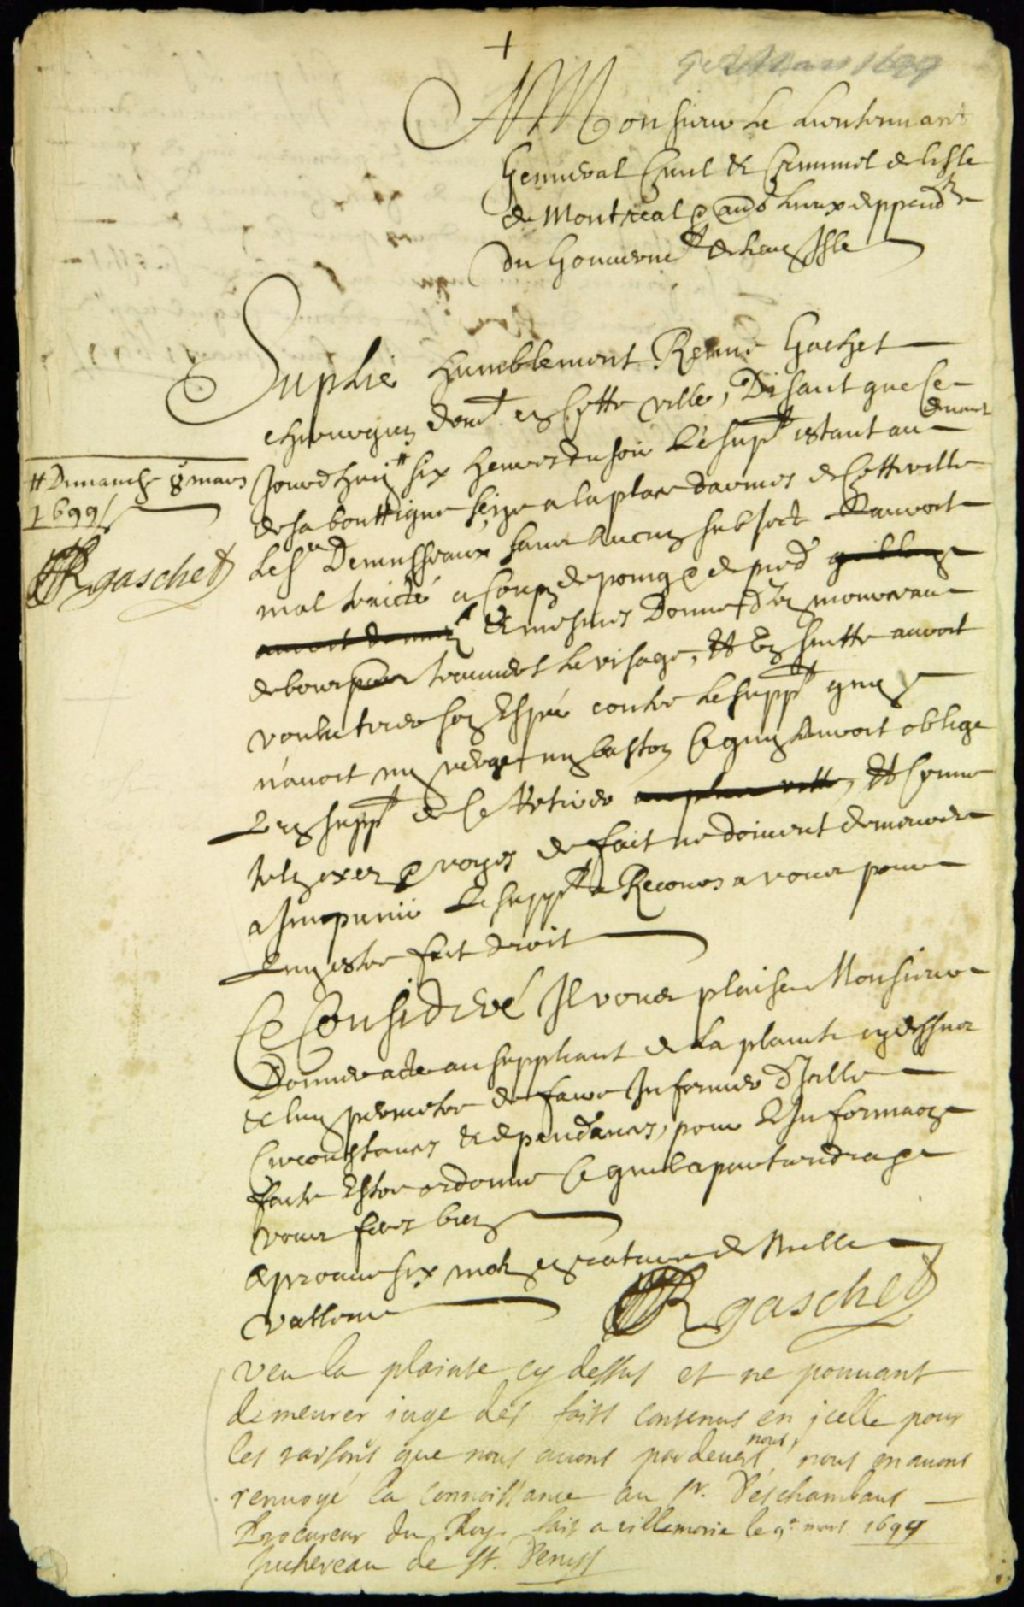 9e Mars 1699
A Monsieur Le Lieutenant
Genneral Civil & Criminel de lisle
de Montreal & aues Lieux deppendtz
Du Gouvernemt de lad Isle
Suplie humblement Renné Gachet
chirurgien demt en Cette ville, Disant que Ce
Jourdhuy # six heures du soir Le supt estant au devant
# Dimanche 8 mars
1699
R gaschet
de sa bouttique size a la place darmes de Cette ville
Le Sr Demusseaux sans Aucun subject Lauroit
mal traicté a Coups de poing & de pied
& mesmes Donné
de bour au travers Le visage, Et En suitte auroit
voulu tirer son Espée contre Le suppt quy
n'avoit ny verge ny baston Ce quy Auroit obligé
Led suppt de Se Retirer, Et Comme
telz exces & voyes de fait ne doivent demeurer
a Impunis Le suppt a Recours a vous pour
Luy estre fait droit
Ce Consideré Il vous plaise Monsieur
Donner acte au suppliant de La plainte cy dessus
& luy permetre de faire Informer D'Icelle
Circonstances & dependances, pour L'Information
faite Estre ordonné Ce quil apartiendra &
vous ferez bien
Aprouvé six motz en rature de Nulle
Valleur
R gaschet
veu la plainte cy dessus et ne pouuant
demeurer juge des faits contenus en jcelle pour
les raisons que nous auons pardeuers nous, nous en auons
renuoyé la connoissance au Sr. Deschambaus
Procureur du Roy. fait a villemarie le 9e mars 1699
Juchereau de St. Denis